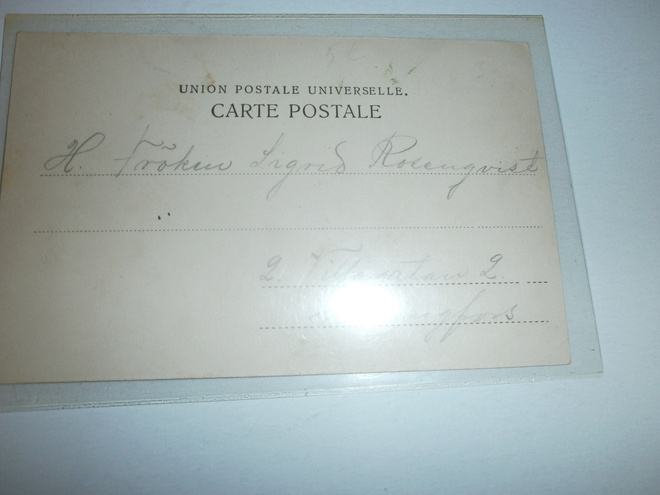 UNION POSTALE UNIVERSELLE.
CARTE POSTALE
H. Fröken Sigrid Rosenqvist
2. Villagatan 2.